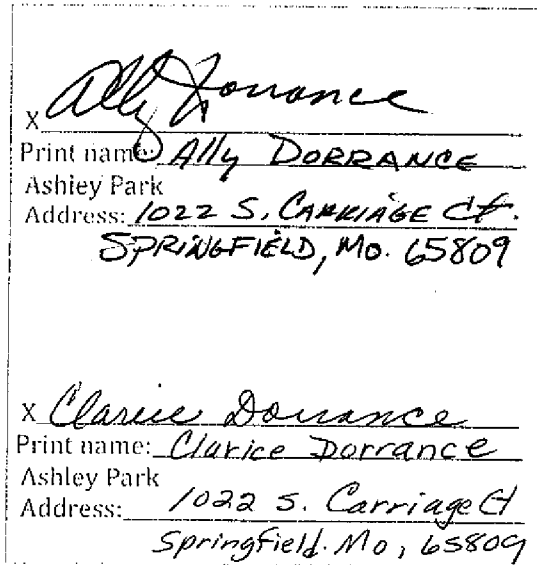 X Ally Dorrance
Print name: Ally DORRANCE
Ashley Park
Address: 1022 S. CARRIAGE Ct.
SPRINGFIELD, Mo. 65809
X Clarice Dorrance
Print name: Clarice Dorrance
Ashley Park
Address: 1022 S. Carriage Ct
Springfield. Mo, 65809